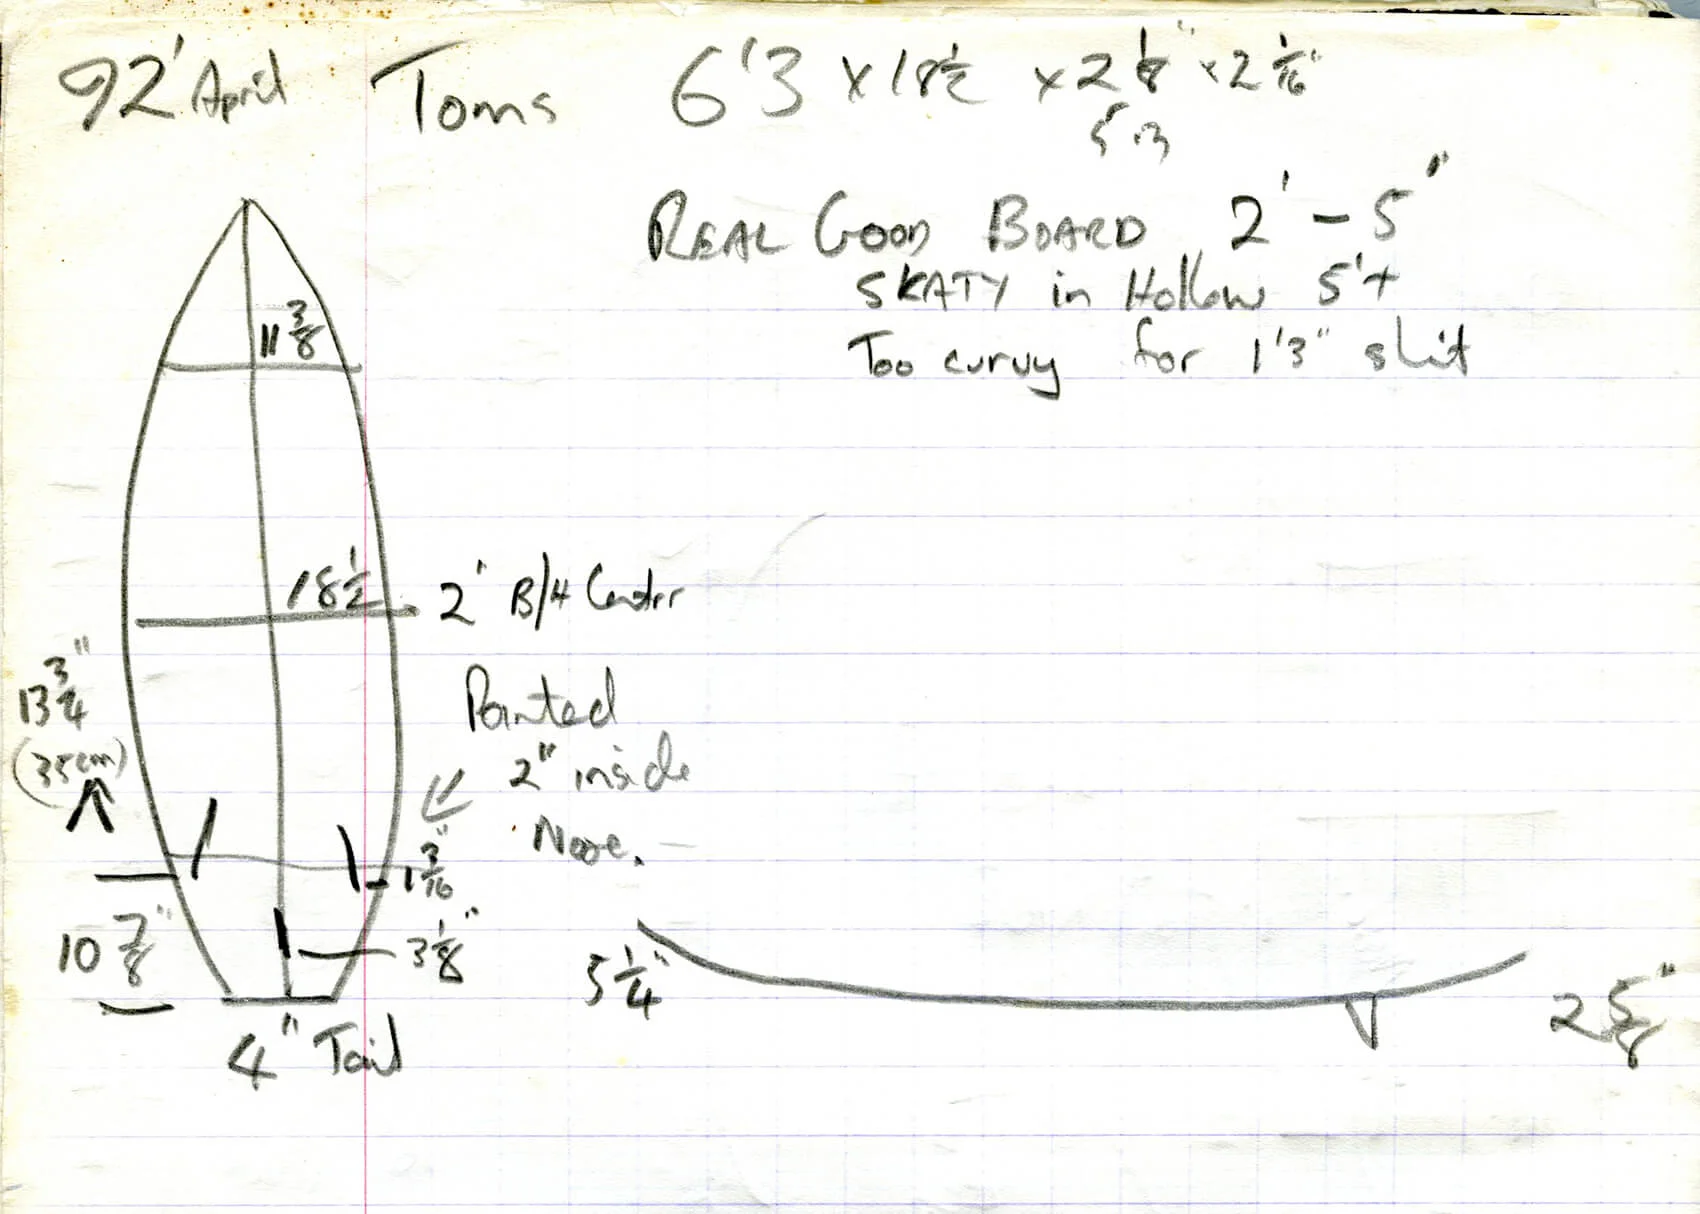 92' April Toms 6'3 x 18 1/2 x 2 1/8" x 2 1/16"
5.3
REAL GOOD BOARD 2' - 5"
SKATY in Hollow 5'+
Too curvy for 1'3" shit
11 3/8
18 1/2
2' B/4 Center
13 3/4"
(35cm)
Pointed
2" inside
Nose.
1 3/16"
10 7/8"
3 1/8"
4" Tail
5 1/4"
2 5/8"